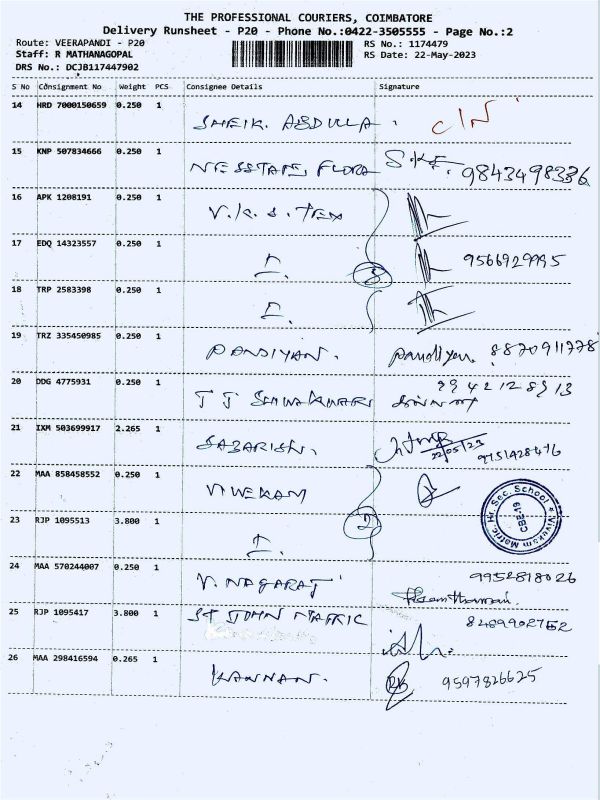 THE PROFESSIONAL COURIERS, COIMBATORE
Delivery Runsheet - P20 - Phone No.:0422-3505555 - Page No.:2
Route: VEERAPANDI - P20 RS No.: 1174479
Staff: R MATHANAGOPAL RS Date: 22-May-2023
DRS No.: DCJB117447902
S No Consignment No Weight PCS Consignee Details Signature
14 HRD 7000150659 0.250 1 SHEIK. ABDULLA. C/N
15 KNP 507834666 0.250 1 FLORA S.K.F. 9843498336
16 APK 1208191 0.250 1 V.K.S. TEX
17 EDQ 14323557 0.250 1 3 9566929995
18 TRP 2583398 0.250 1
19 TRZ 335450985 0.250 1 PANDIYAN. pandiyan. 8870911778
20 DDG 4775931 0.250 1 9942128913
21 IXM 503699917 2.265 1 SABARISH. 22/05/23 9751428476
22 MAA 858458552 0.250 1 VIVEKAM
23 RJP 1095513 3.800 1 2
Vivekam Matric. Hr. Sec. School * CBE-19
24 MAA 570244007 0.250 1 V. NAGARAJ 9952818026
25 RJP 1095417 3.800 1 ST JOHN MATRIC 8489902752
26 MAA 298416594 0.265 1 KANNAN. 9597826625